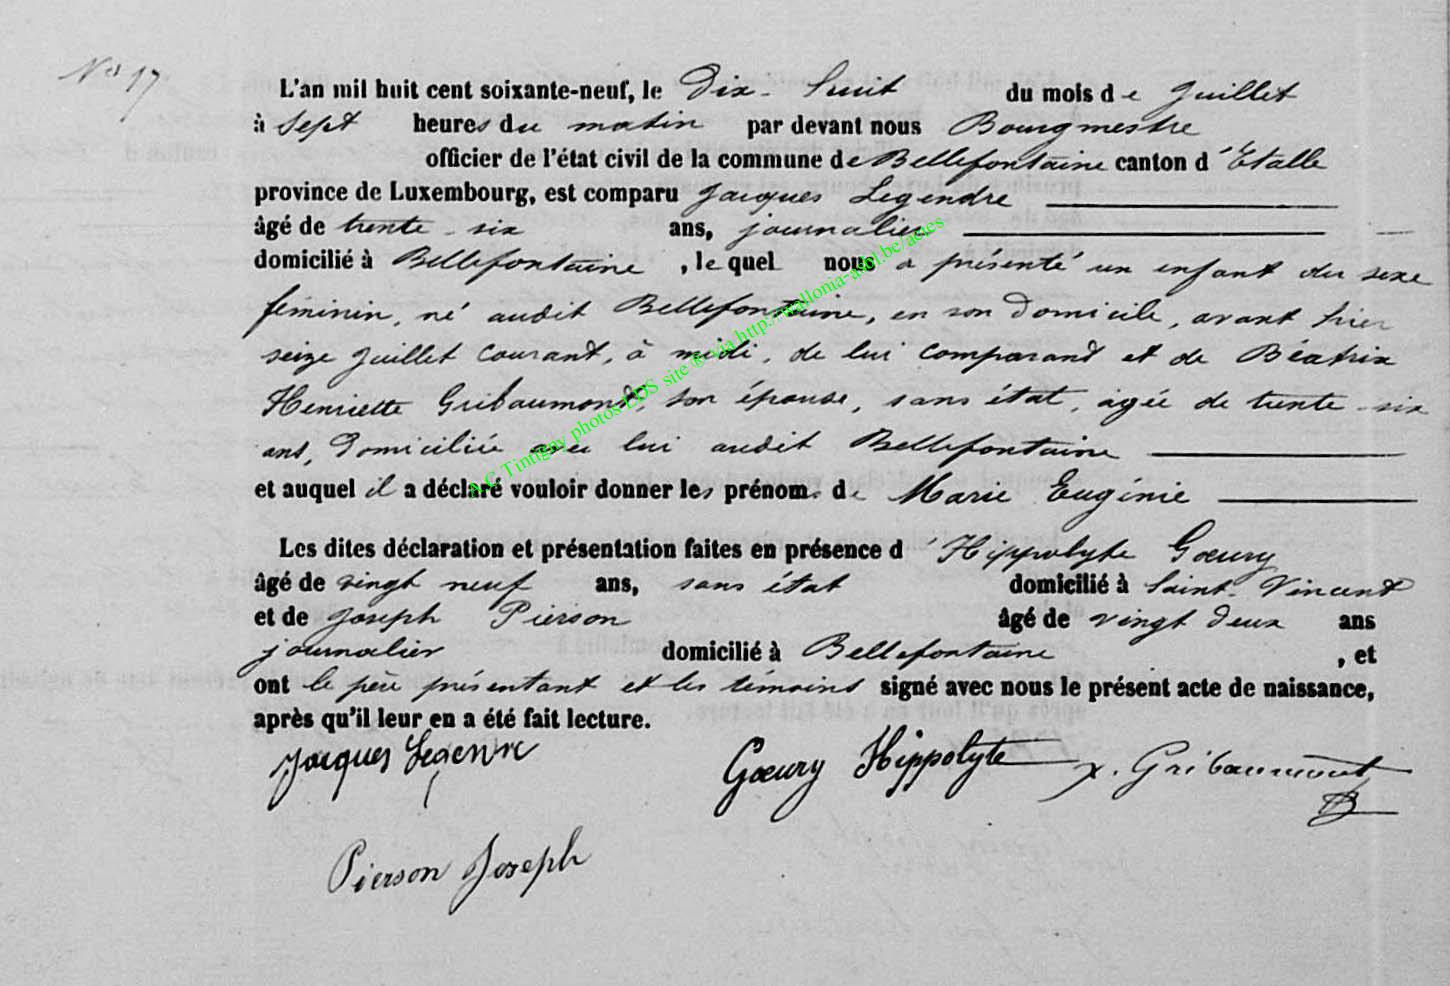 No 17
L'an mil huit cent soixante-neuf, le Dix-huit du mois de Juillet
à Sept heures du matin par devant nous Bourgmestre
officier de l'état civil de la commune de Bellefontaine canton d'Etalle
province de Luxembourg, est comparu Jacques Legendre
âgé de trente-six ans, journalier
domicilié à Bellefontaine, le quel nous a présenté un enfant du sexe
féminin, né audit Bellefontaine, en son domicile, avant hier
seize Juillet courant, à midi, de lui comparant et de Béatrix
Henriette Gribaumont, son épouse, sans état, agée de trente-six
ans, domiciliée avec lui audit Bellefontaine
et auquel il a déclaré vouloir donner les prénoms de Marie Eugénie
Les dites déclaration et présentation faites en présence d'Hippolyte Gœury
âgé de vingt neuf ans, sans état domicilié à Saint-Vincent
et de Joseph Pierson âgé de vingt deux ans
journalier domicilié à Bellefontaine, et
ont le père présentant et les témoins signé avec nous le présent acte de naissance,
après qu'il leur en a été fait lecture.
Jacques Legendre Gœury Hippolyte x. Gribaumont
Pierson Joseph
A.C Tintigny photos LDS site ® via http://wallonia-asbl.be/actes